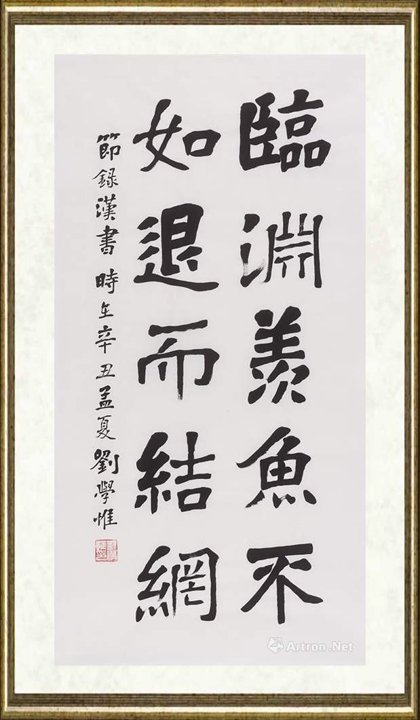 臨淵羨魚不
如退而結網
節録漢書時在辛丑孟夏劉學惟
Artron.Net